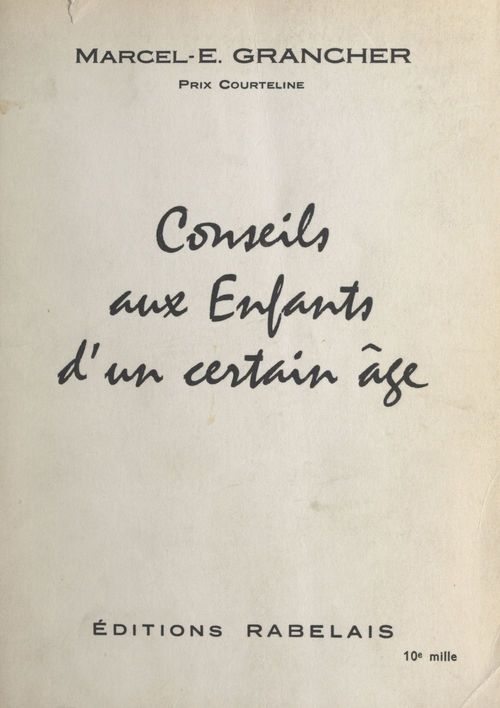 MARCEL-E. GRANCHER
PRIX COURTELINE
Conseils
aux Enfants
d'un certain âge
ÉDITIONS RABELAIS
10e mille